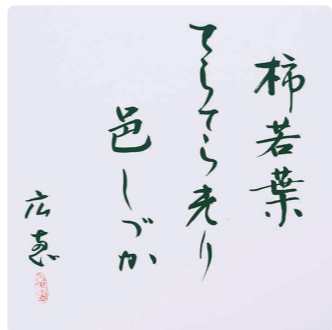 柿若葉
てらてら光り
邑しづか